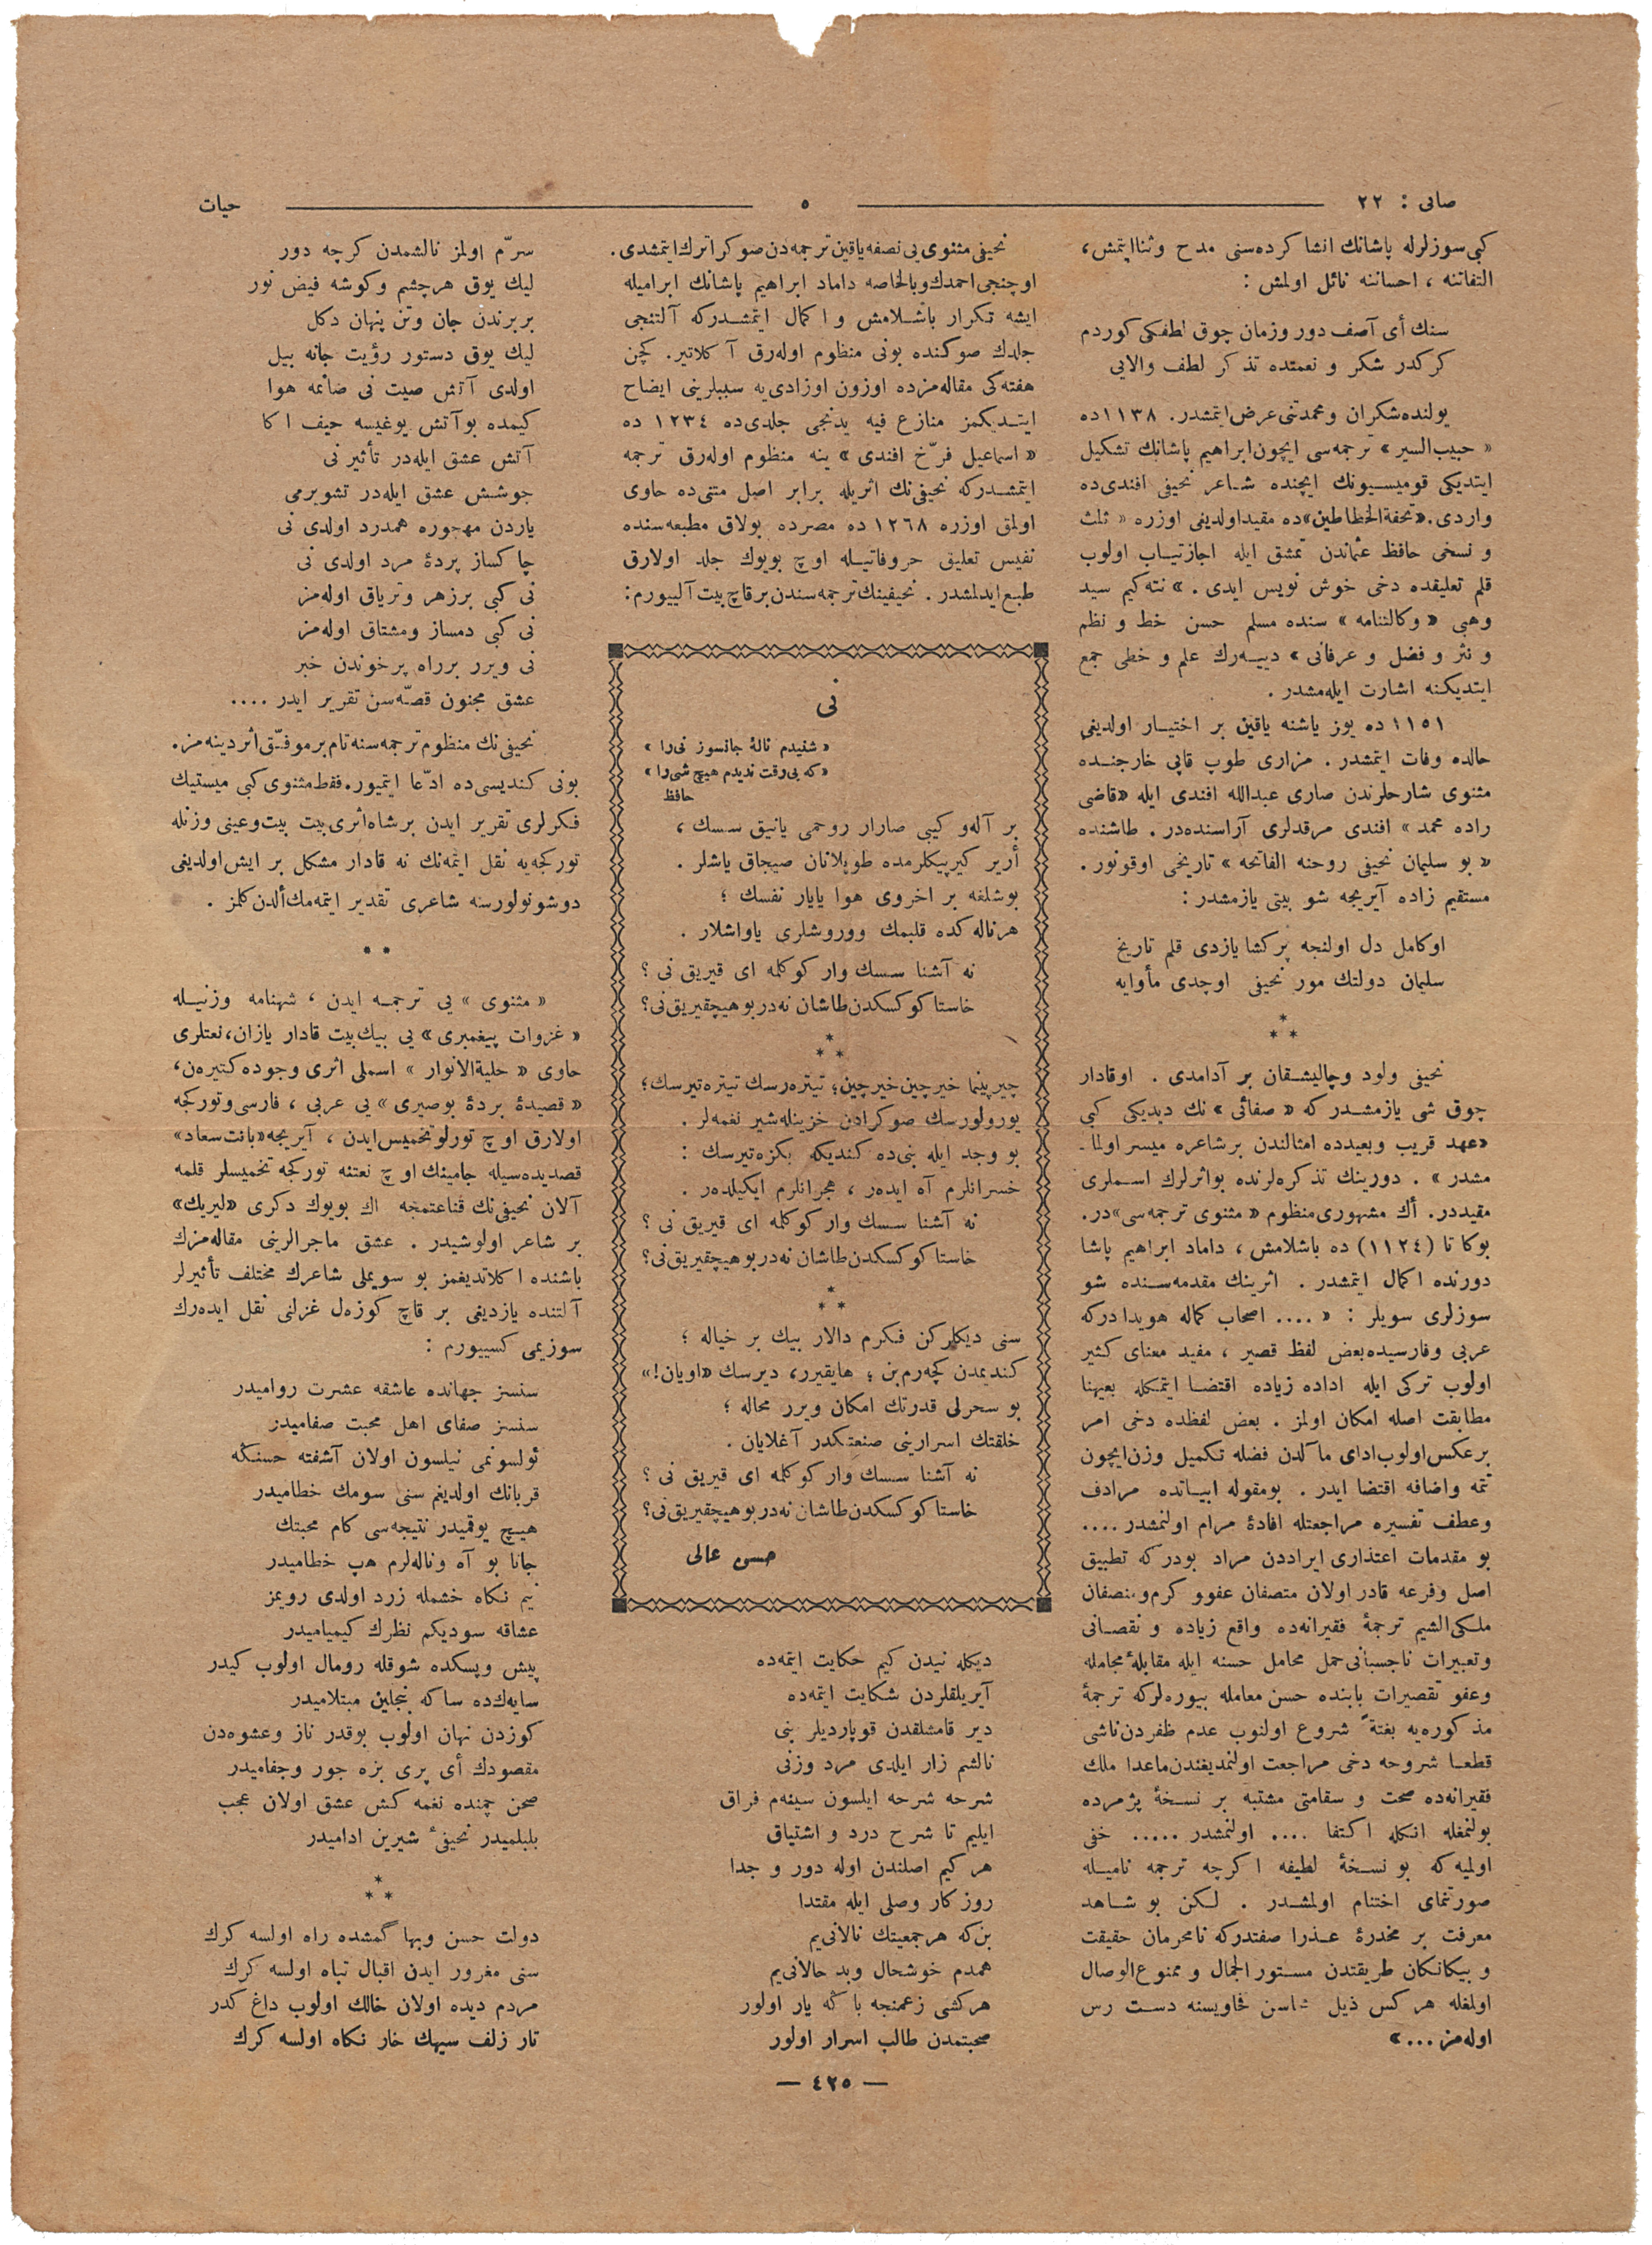 صانی : ٢٢
٥
حیات
کبی سوزلرله پاشانك انشا کرده‌سنی مدح و ثنا ایتمش،
التفاتنه ، احساننه نائل اولمش :
سنك أی آصف دور وزمان چوق لطفکی کوردم
کرکدر شکر و نعمتده تذکر لطف والایی
یولنده شکران ومحمدتنی عرض ایتمشدر. ١١٣٨ ده
« حبیب السیر » ترجمه‌سی ایچون ابراهیم پاشانك تشکیل
ایتدیکی قومیسیونك ایچنده شاعر نحیفی افندی ده
واردی. «تحفة الخطاطین» ده مقید اولدیغی اوزره « ثلث
و نسخی حافظ عثماندن تمشق ایله اجازتیاب اولوب
قلم تعلیقده دخی خوش نویس ایدی . » نته کیم سید
وهبی « وکالتنامه » سنده مسلم حسن خط و نظم
و نثر و فضل و عرفانی » دییه‌رك علم و خطی جمع
ایتدیکنه اشارت ایله‌مشدر .
١١٥١ ده یوز یاشنه یاقین بر اختیار اولدیغی
حالده وفات ایتمشدر . مزاری طوپ قاپی خارجنده
مثنوی شارحلرندن صاری عبدالله افندی ایله «قاضی
زاده محمد » افندی مرقدلری آراسنده‌در . طاشنده
« بو سلیمان نحیفی روحنه الفاتحه » تاریخی اوقونور .
مستقیم زاده آیریجه شو بیتی یازمشدر :
اوکامل دل اولنجه پرکشا یازدی قلم تاریخ
سلیمان دولتك مور نحیفی اوچدی مأوایه
* * *
نحیفی ولود وچالیشقان بر آدامدی . اوقادار
چوق شی یازمشدر که « صفائی » نك دیدیکی کبی
«عهد قریب وبعیدده امثالندن بر شاعره میسر اولما-
مشدر » . دورینك تذکره‌لرنده بو اثرلرك اسملری
مقیددر. أك مشهوری منظوم « مثنوی ترجمه‌سی» در.
بوکا تا (١١٢٤) ده باشلامش ، داماد ابراهیم پاشا
دورنده اکمال ایتمشدر . اثرینك مقدمه‌سنده شو
سوزلری سویلر : « .... اصحاب کماله هویدادرکه
عربی وفارسیده بعض لفظ قصیر ، مفید معنای کثیر
اولوب ترکی ایله اداده زیاده اقتضا ایتمکله بعینها
مطابقت اصله امکان اولمز . بعض لفظده دخی امر
برعکس اولوب ادای مآلدن فضله تکمیل وزن ایچون
تتمه واضافه اقتضا ایدر . بومقوله ابیاتده مرادف
وعطف تفسیره مراجعتله افادهٔ مرام اولنمشدر ....
بو مقدمات اعتذاری ایراددن مراد بودرکه تطبیق
اصل وفرعه قادر اولان متصفان عفوو کرم ومنصفان
ملکی الشیم ترجمهٔ فقیرانه‌ده واقع زیاده و نقصانی
وتعبیرات ناچسبانی حمل محامل حسنه ایله مقابلهٔ مجامله
وعفو تقصیرات بابنده حسن معامله بیوره‌لرکه ترجمهٔ
مذکوره‌یه بغتةً شروع اولنوب عدم ظفردن ناشی
قطعا شروحه دخی مراجعت اولنمدیغندن ماعدا ملك
فقیرانه‌ده صحت و سقامتی مشتبه بر نسخهٔ پژمرده
بولنمغله انکله اکتفا .... اولنمشدر ..... خفی
اولمیه که بو نسخهٔ لطیفه اکرچه ترجمه نامیله
صورتنمای اختتام اولمشدر . لکن بو شاهد
معرفت بر مخدرهٔ عذرا صفتدرکه نامحرمان حقیقت
و بیکانکان طریقتدن مستور الجمال و ممنوع الوصال
اولمغله هر کس ذیل شاسن فحاویسنه دست رس
اوله‌مز ... »
نحیفی مثنوی یی نصفه یاقین ترجمه‌دن صوکرا ترك ایتمشدی.
اوچنجی احمدك وبالخاصه داماد ابراهیم پاشانك ابرامیله
ایشه تکرار باشلامش و اکمال ایتمشدرکه آلتنجی
جلدك صوکنده بونی منظوم اوله‌رق آکلاتیر. کچن
هفته‌کی مقاله‌مزده اوزون اوزادی یه سببلرینی ایضاح
ایتدیکمز منازع فیه یدنجی جلدی ده ١٢٣٤ ده
« اسماعیل فرّخ افندی » ینه منظوم اوله‌رق ترجمه
ایتمشدرکه نحیفی نك اثریله برابر اصل متنی ده حاوی
اولمق اوزره ١٢٦٨ ده مصرده بولاق مطبعه‌سنده
نفیس تعلیق حروفاتیله اوچ بویوك جلد اولارق
طبع ایدلمشدر . نحیفینك ترجمه‌سندن بر قاچ بیت آلییورم:
نی
« شنیدم نالهٔ جانسوز نی را »
«که بی رقت ندیدم هیچ شی را »
حافظ
بر آله‌و کیبی صارار روحمی یانیق سسك ،
أریر کیرپیکلرمده طوپلانان صیجاق یاشلر .
بوشلغه بر اخروی هوا یایار نفسك ؛
هرناله کده قلبمك ووروشلری یاواشلار .
نه آشنا سسك وار کوکلمه ای قیریق نی ؟
خاستا کوکسکدن طاشان نه‌در بو هیچقیریق نی؟
* * *
چیرپینما خیرچین خیرچین؛ تیتره‌رسك تیتره تیرسك؛
یورولورسك صوکرادن خزینله‌شیر نغمه‌لر .
بو وجد ایله بنی ده کندیکه بکزه‌تیرسك :
خسرانلرم آه ایده‌ر ، هجرانلرم ایکیلده‌ر .
نه آشنا سسك وار کوکلمه ای قیریق نی ؟
خاستا کوکسکدن طاشان نه‌در بو هیچقیریق نی؟
* * *
سنی دیکلرکن فکرم دالار بیك بر خیاله ؛
کندیمدن کچه‌رم بن ؛ هایقیرر، دیرسك «اویان!»
بو سحرلی قدرتك امکان ویرر محاله ؛
خلقتك اسرارینی صنعتکدر آغلایان .
نه آشنا سسك وار کوکلمه ای قیریق نی ؟
خاستا کوکسکدن طاشان نه‌در بو هیچقیریق نی؟
حسن عالی
دیکله نیدن کیم حکایت ایتمه‌ده
آیریلقلردن شکایت ایتمه‌ده
دیر قامشلقدن قوپاردیلر بنی
نالشم زار ایلدی مرد وزنی
شرحه شرحه ایلسون سینه‌م فراق
ایلیم تا شرح درد و اشتیاق
هر کیم اصلندن اوله دور و جدا
روزکار وصلی ایله مقتدا
بن که هر جمعیتك نالانی یم
همدم خوشحال وبد حالانی یم
هرکشی زعمنجه باکه یار اولور
صحبتمدن طالب اسرار اولور
سرّم اولمز نالشمدن کرچه دور
لیك یوق هرچشم وکوشه فیض نور
بربرندن جان وتن پنهان دکل
لیك یوق دستور رؤیت جانه بیل
اولدی آتش صیت نی ضانمه هوا
کیمده بو آتش یوغیسه حیف اکا
آتش عشق ایله‌در تأثیر نی
جوشش عشق ایله‌در تشویرمی
یاردن مهجوره همدرد اولدی نی
چاکساز پردهٔ مرد اولدی نی
نی کبی برزهر وتریاق اوله‌مز
نی کبی دمساز ومشتاق اوله‌مز
نی ویرر برراه پرخوندن خبر
عشق مجنون قصّه‌سن تقریر ایدر ....
نحیفی نك منظوم ترجمه‌سنه تام بر موفّق اثر دینه‌مز.
بونی کندیسی ده ادّعا ایتمیور. فقط مثنوی کبی میستیك
فکرلری تقریر ایدن بر شاه اثری بیت بیت وعینی وزنله
تورکجه‌یه نقل ایتمه‌نك نه قادار مشکل بر ایش اولدیغی
دوشونولورسه شاعری تقدیر ایتمه‌مك ألدن کلمز .
* *
« مثنوی » یی ترجمه ایدن ، شهنامه وزنیله
« غزوات پیغمبری » یی بیك بیت قادار یازان، نعتلری
حاوی « حلیة الانوار » اسملی اثری وجوده کتیره‌ن،
« قصیدهٔ بردهٔ بوصیری » یی عربی ، فارسی وتورکجه
اولارق اوچ تورلو تخمیس ایدن ، آیریجه «بانت سعاد»
قصدیده‌سیله جامینك اوچ نعتنه تورکجه تخمیسلر قلمه
آلان نحیفی نك قناعتمجه اك بویوك دکری «لیریك»
بر شاعر اولوشیدر . عشق ماجرالرینی مقاله‌مزك
باشنده اکلاتدیغمز بو سویملی شاعرك مختلف تأثیرلر
آلتنده یازدیغی بر قاچ کوزه‌ل غزلنی نقل ایده‌رك
سوزیمی کسییورم :
سنسز جهانده عاشقه عشرت روامیدر
سنسز صفای اهل محبت صفامیدر
ئولسونمی نیلسون اولان آشفته حسنکه
قربانك اولدیغم سنی سومك خطامیدر
هیچ یوقمیدر نتیجه‌سی کام محبتك
جانا بو آه وناله‌لرم هپ خطامیدر
نیم نکاه خشمله زرد اولدی رویمز
عشاقه سودیکم نظرك کیمیامیدر
پیش وپسکده شوقله رومال اولوب کیدر
سایه‌ك ده ساکه بنجلین مبتلامیدر
کوزدن نهان اولوب بوقدر ناز وعشوه‌دن
مقصودك أی پری بزه جور وجفامیدر
صحن چمنده نغمه کش عشق اولان عجب
بلبلمیدر نحیفیٔ شیرین ادامیدر
* * *
دولت حسن وبها گمشده راه اولسه کرك
سنی مغرور ایدن اقبال تباه اولسه کرك
مردم دیده اولان خالك اولوب داغ کدر
تار زلف سیهك خار نکاه اولسه کرك
— ٤٢٥ —